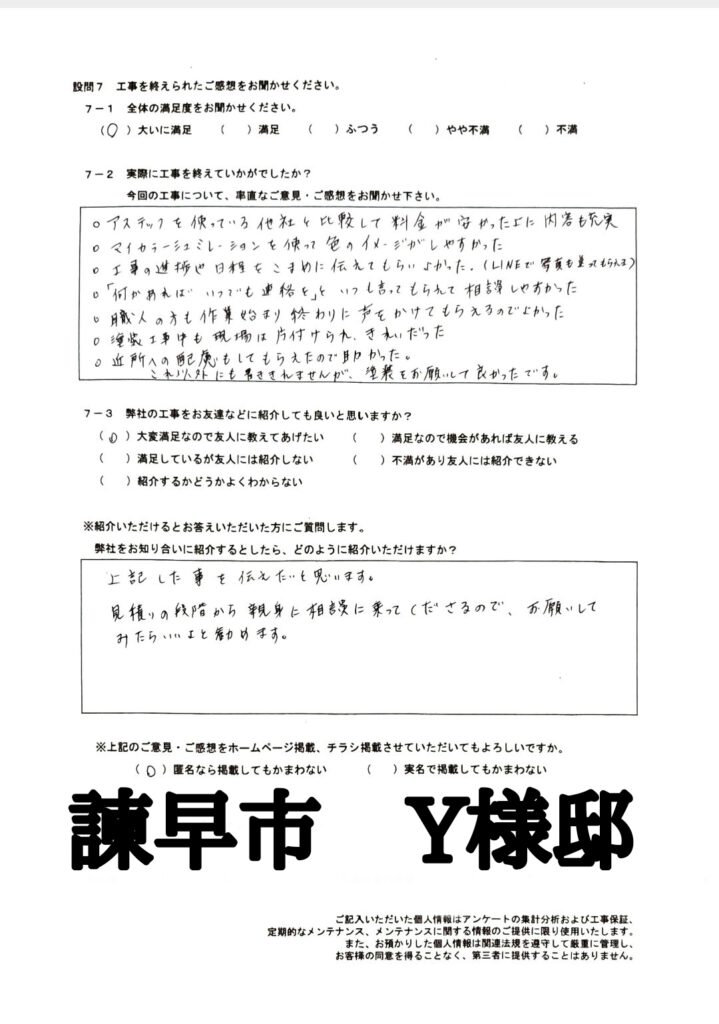 設問7　工事を終えられたご感想をお聞かせください。
7－1　全体の満足度をお聞かせください。
(○)大いに満足　(　)満足　(　)ふつう　(　)やや不満　(　)不満
7－2　実際に工事を終えていかがでしたか？
今回の工事について、率直なご意見・ご感想をお聞かせ下さい。
○ アステックを使っている他社と比較して料金が安かった上に内容も充実
○ マイカラーシュミレーションを使って色のイメージがしやすかった
○ 工事の進捗や日程をこまめに伝えてもらいよかった.(LINEで写真も送ってもらえる)
○「何かあればいつでも連絡を」といつも言ってもらえて相談しやすかった
○ 職人の方も作業始まり終わりに声をかけてもらえるのでよかった
○ 塗装工事中も現場は片付けられ、きれいだった
○ 近所への配慮もしてもらえたので助かった。
これ以外にも書ききれませんが、塗装をお願いして良かったです。
7－3　弊社の工事をお友達などに紹介しても良いと思いますか？
(○)大変満足なので友人に教えてあげたい　(　)満足なので機会があれば友人に教える
(　)満足しているが友人には紹介しない　(　)不満があり友人には紹介できない
(　)紹介するかどうかよくわからない
※紹介いただけるとお答えいただいた方にご質問します。
弊社をお知り合いに紹介するとしたら、どのように紹介いただけますか？
上記した事を伝えたいと思います。
見積りの段階から親身に相談に乗ってくださるので、お願いして
みたらいいよと勧めます。
※上記のご意見・ご感想をホームページ掲載、チラシ掲載させていただいてもよろしいですか。
(○)匿名なら掲載してもかまわない　(　)実名で掲載してもかまわない
諫早市　Y様邸
ご記入いただいた個人情報はアンケートの集計分析および工事保証、
定期的なメンテナンス、メンテナンスに関する情報のご提供に限り使用いたします。
また、お預かりした個人情報は関連法規を遵守して厳重に管理し、
お客様の同意を得ることなく、第三者に提供することはありません。